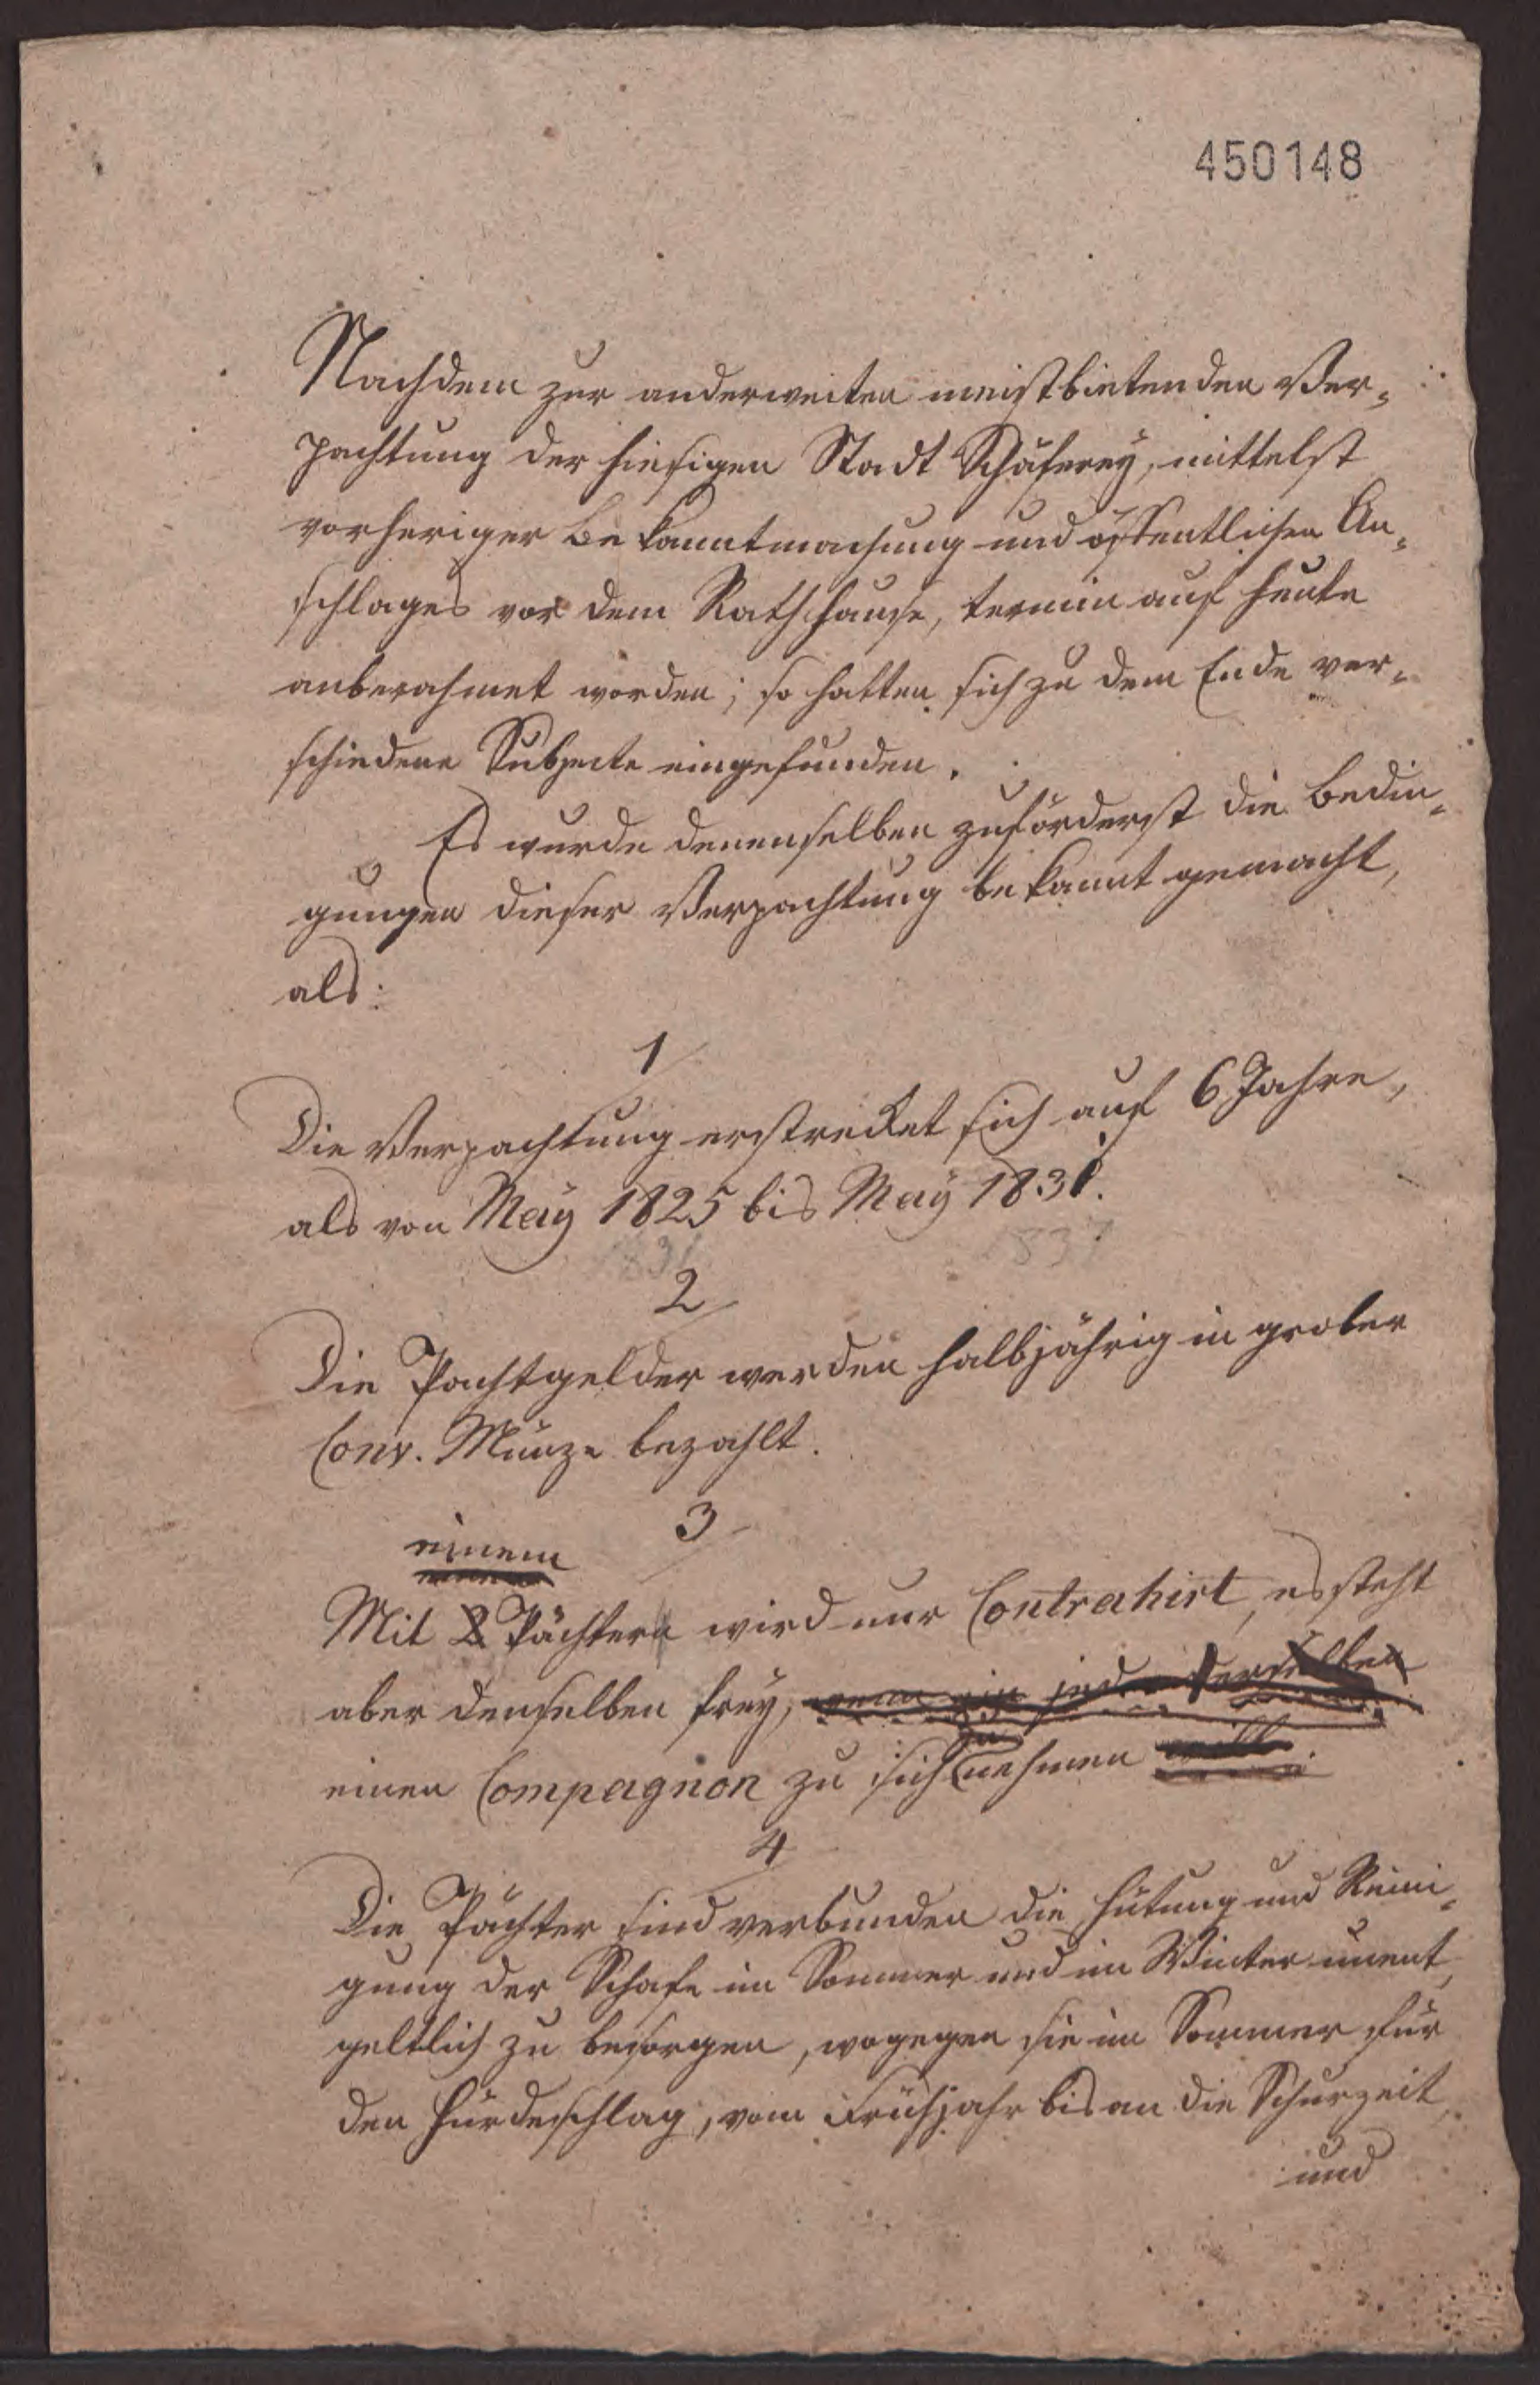 450148
Nachdem zur anderweiten meistbietenden Ver-
pachtung der hiesigen Stadt Schäferey, mittelst
vorheriger Bekanntmachung und öffentlichen An-
schlages vor dem Rathhause, termin auf heute
anberahmet worden; so hatten sich zu dem Ende ver-
schiedene Subjecte eingefunden.
Es wurde denenselben zuförderst die Bedin-
gungen dieser Verpachtung bekannt gemacht,
als:
1
Die Verpachtung erstrecket sich auf 6 Jahre,
als von May 1825 bis May 1831.
1831 1837
2
Die Pachtgelder werden halbjährig in grober
Conv. Münze bezahlt.
3
einem
Mit 2 Pächtern wird nur Contrahirt, es steht
aber denselben frey, wenn ein jeder derselben
zu
einen Compagnon zu sich nehmen will
4
Die Pächter sind verbunden die Hütung und Reini-
gung der Schafe im Sommer und im Winter unent-
geltlich zu besorgen, wogegen sie im Sommer für
den Hürdeschlag, vom Frühjahr bis an die Schurzeit,
und